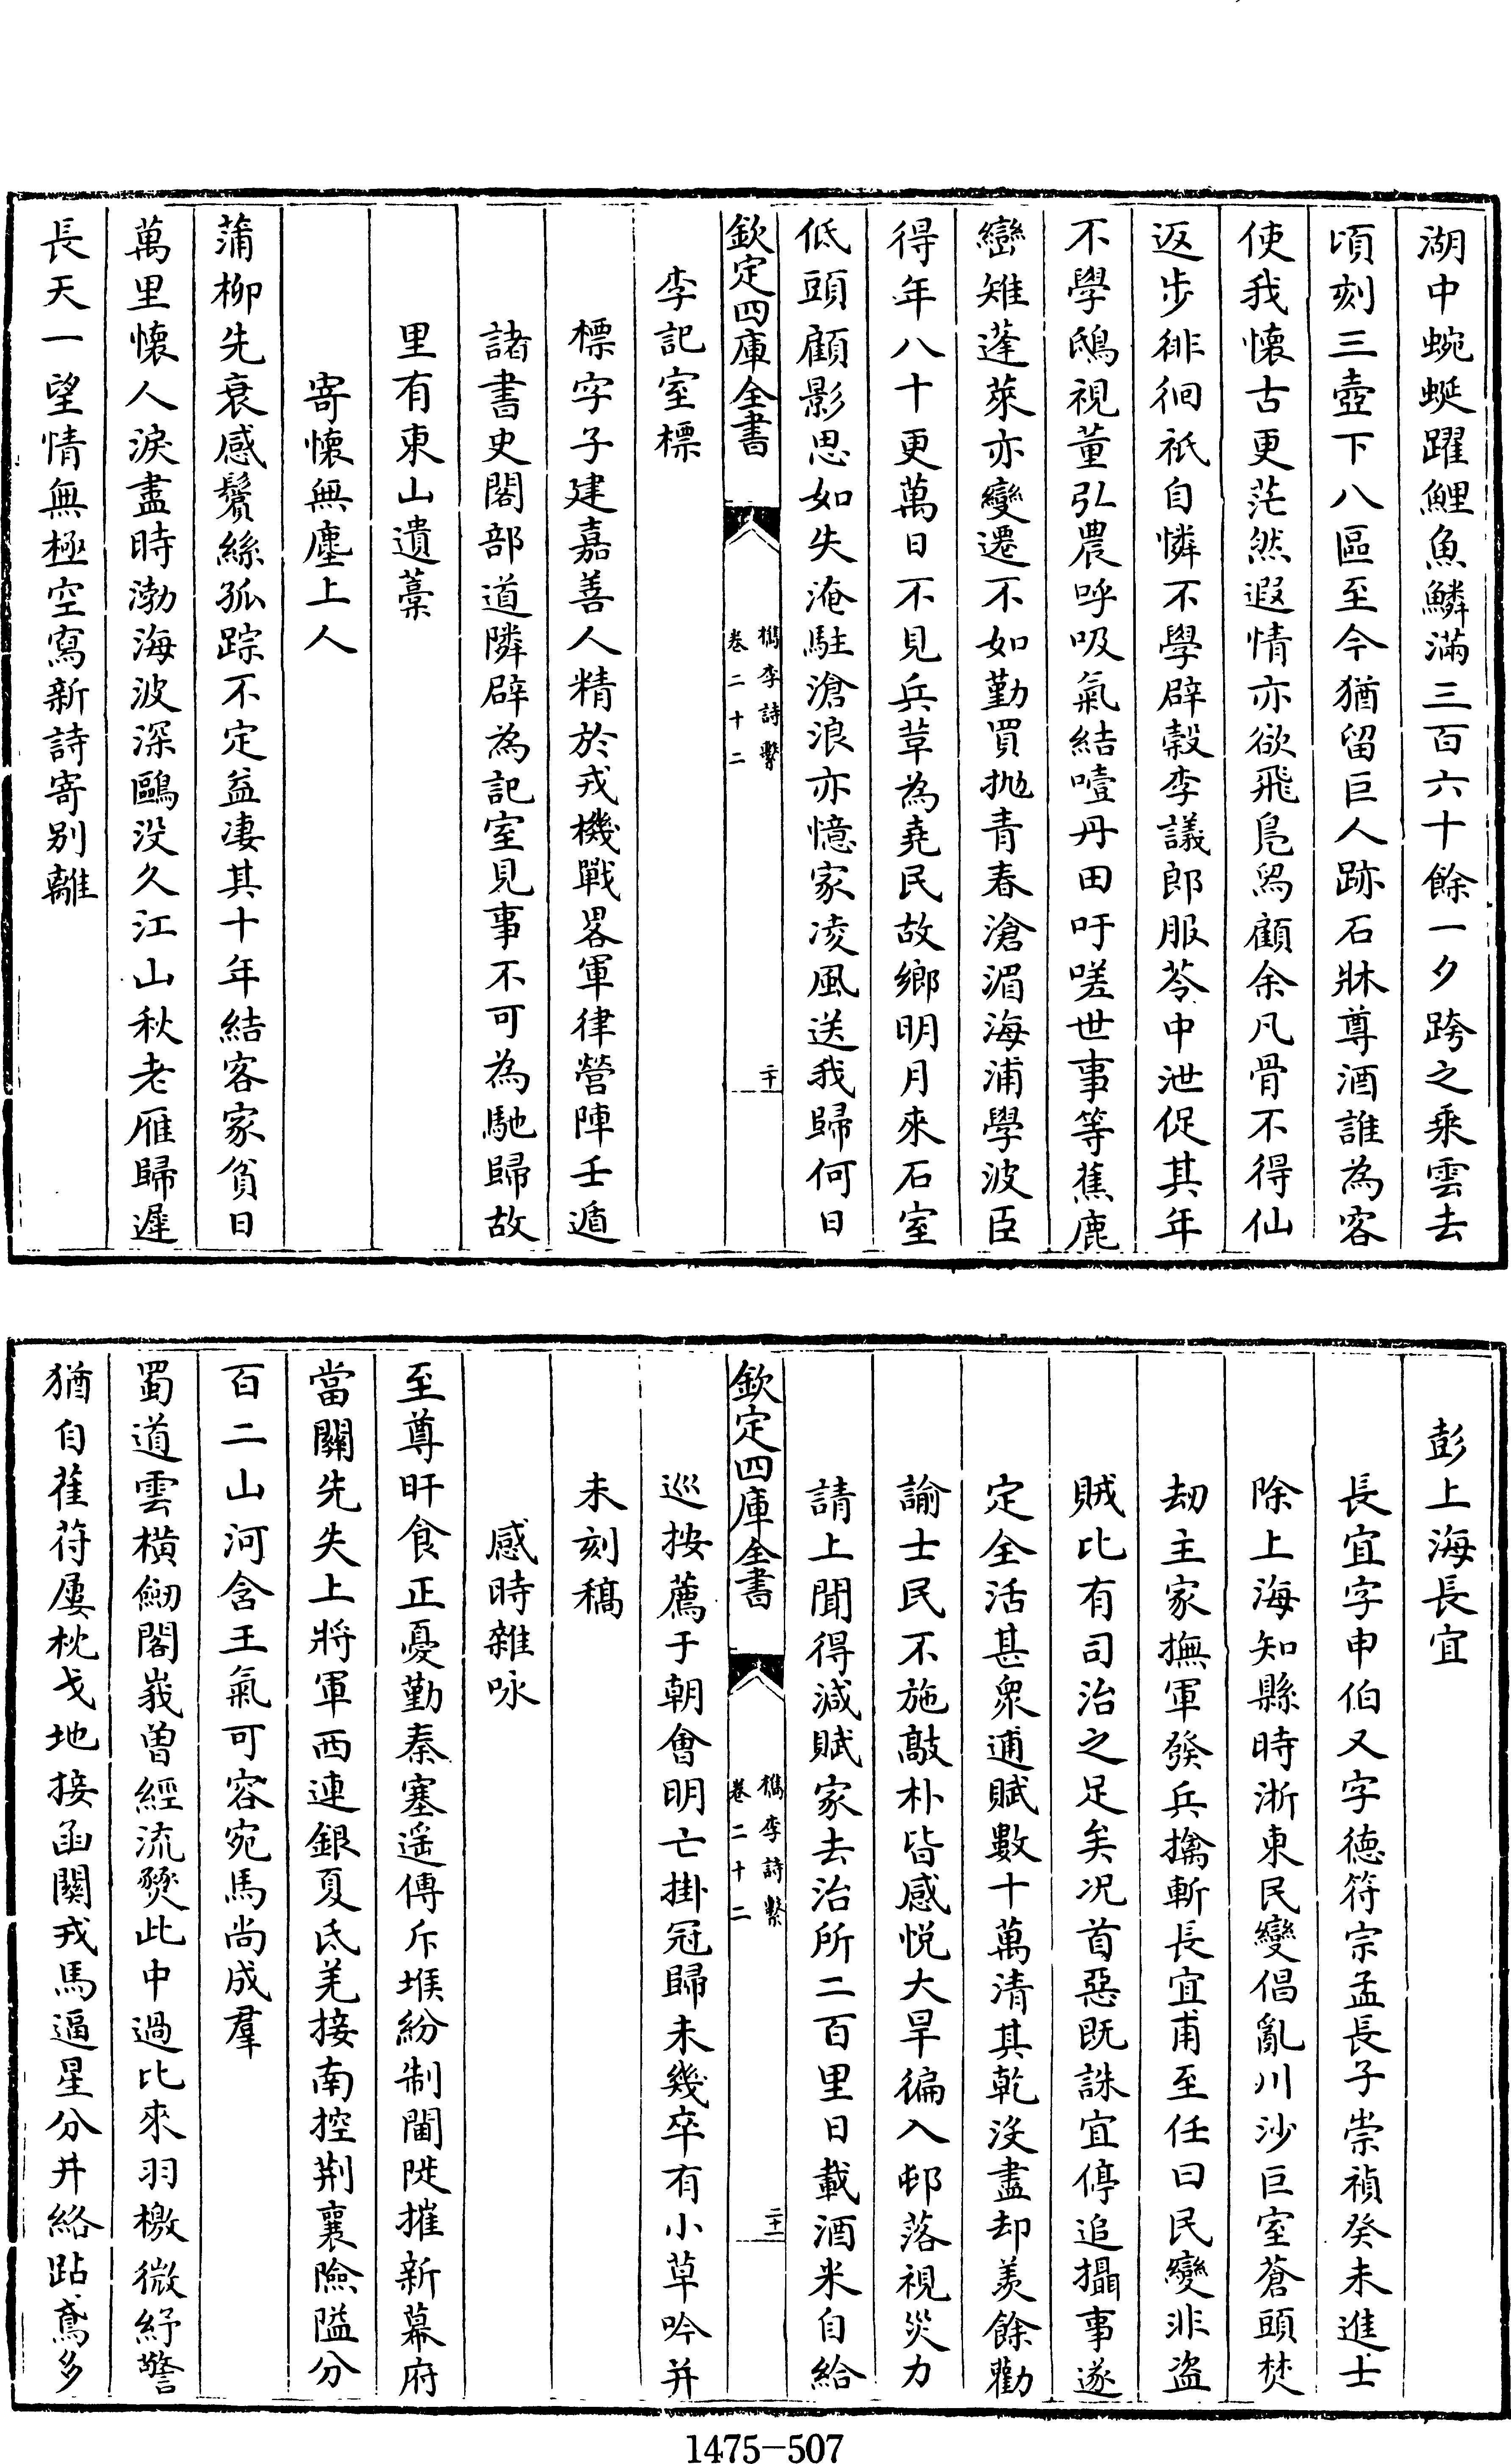 湖中蜿蜒躍鯉魚鱗滿三百六十餘一夕跨之乘雲去
頃刻三壺下八區至今猶留巨人跡石牀尊酒誰為客
使我懷古更茫然遐情亦欲飛鳧舄顧余凡骨不得仙
返步徘徊祇自憐不學辟穀李議郎服苓中泄促其年
不學鴟視董弘農呼吸氣結噎丹田吁嗟世事等蕉鹿
巒雉蓬萊亦變遷不如勤買抛青春滄湄海浦學波臣
得年八十更萬日不見兵革為堯民故鄉明月來石室
低頭顧影思如失淹駐滄浪亦憶家凌風送我歸何日
欽定四庫全書
檇李詩繫
卷二十二
二十
李記室標
標字子建嘉善人精於戎機戰畧軍律營陣壬遁
諸書史閣部道隣辟為記室見事不可為馳歸故
里有東山遺藁
寄懷無塵上人
蒲柳先衰感鬢絲孤踪不定益凄其十年結客家貧日
萬里懷人淚盡時渤海波深鷗沒久江山秋老雁歸遲
長天一望情無極空寫新詩寄别離
彭上海長宜
長宜字申伯又字德符宗孟長子崇禎癸未進士
除上海知縣時浙東民變倡亂川沙巨室蒼頭焚
刼主家撫軍發兵擒斬長宜甫至任曰民變非盜
賊比有司治之足矣况首惡既誅宜停追攝事遂
定全活甚衆逋賦數十萬清其乾沒盡却羨餘勸
諭士民不施敲朴皆感悦大旱徧入邨落視災力
請上聞得減賦家去治所二百里日載酒米自給
欽定四庫全書
檇李詩繫
卷二十二
二十一
巡按薦于朝會明亡掛冠歸未幾卒有小草吟并
未刻稿
感時雜咏
至尊旰食正憂勤秦塞遥傳斥堠紛制閫陡摧新幕府
當關先失上將軍西連銀夏氐羌接南控荆襄險隘分
百二山河含王氣可容宛馬尚成羣
蜀道雲橫劒閣峩曽經流燹此中過比來羽檄微紓警
猶自萑苻屢枕戈地接函關戎馬逼星分井絡跕鳶多
1475-507